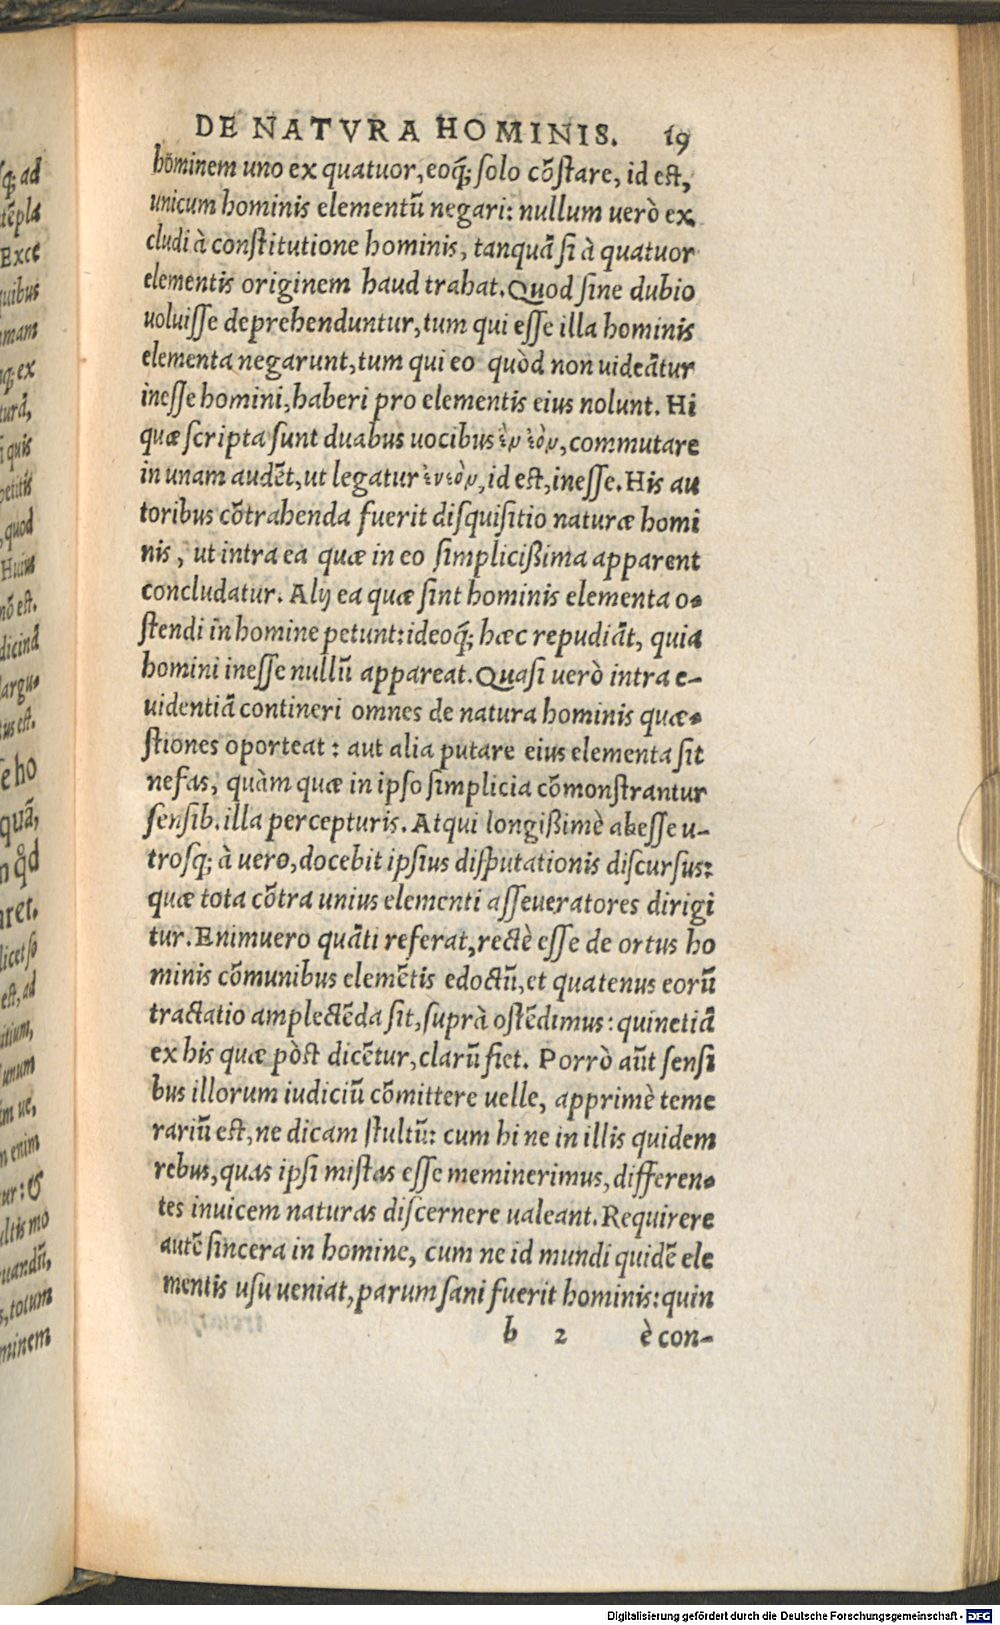 DE NATVRA HOMINIS. 19
hominem uno ex quatuor, eoq́; solo cōstare, id est,
unicum hominis elementū negari: nullum uerò ex
cludi à constitutione hominis, tanquā si à quatuor
elementis originem haud trahat. Quod sine dubio
uoluisse deprehenduntur, tum qui esse illa hominis
elementa negarunt, tum qui eo quòd non uideātur
inesse homini, haberi pro elementis eius nolunt. Hi
quæ scripta sunt duabus uocibus ἓν ἐὸν, commutare
in unam audēt, ut legatur ἐνεὸν, id est, inesse. His au
toribus cōtrahenda fuerit disquisitio naturæ homi
nis, ut intra ea quæ in eo simplicißima apparent
concludatur. Alij ea quæ sint hominis elementa o-
stendi in homine petunt: ideoq́; hæc repudiāt, quia
homini inesse nullū appareat. Quasi uerò intra e-
uidentiā contineri omnes de natura hominis quæ-
stiones oporteat: aut alia putare eius elementa sit
nefas, quàm quæ in ipso simplicia cōmonstrantur
sensib. illa percepturis. Atqui longißimè abesse u-
trosq; à uero, docebit ipsius disputationis discursus:
quæ tota cōtra unius elementi asseueratores dirigi
tur. Enimuero quāti referat, rectè esse de ortus ho
minis cōmunibus elemētis edoctū, et quatenus eorū
tractatio amplectēda sit, suprà ostēdimus: quinetiā
ex his quæ pòst dicētur, clarū fiet. Porrò aūt sensi
bus illorum iudiciū cōmittere uelle, apprimè teme
rariū est, ne dicam stultū: cum hi ne in illis quidem
rebus, quas ipsi mistas esse meminerimus, differen-
tes inuicem naturas discernere ualeant. Requirere
autē sincera in homine, cum ne id mundi quidē ele
mentis usu ueniat, parum sani fuerit hominis: quin
b 2 è con-
q; ad
tēpla
Exce
quibus
ex
quis
quod
Huius
nō est.
dicinā
argu-
tus est.
se ho
quā,
licet so
est, ad
unum
enim
ur: &
ltis mo
uandū,
totum
minem
Digitalisierung gefördert durch die Deutsche Forschungsgemeinschaft - DFG